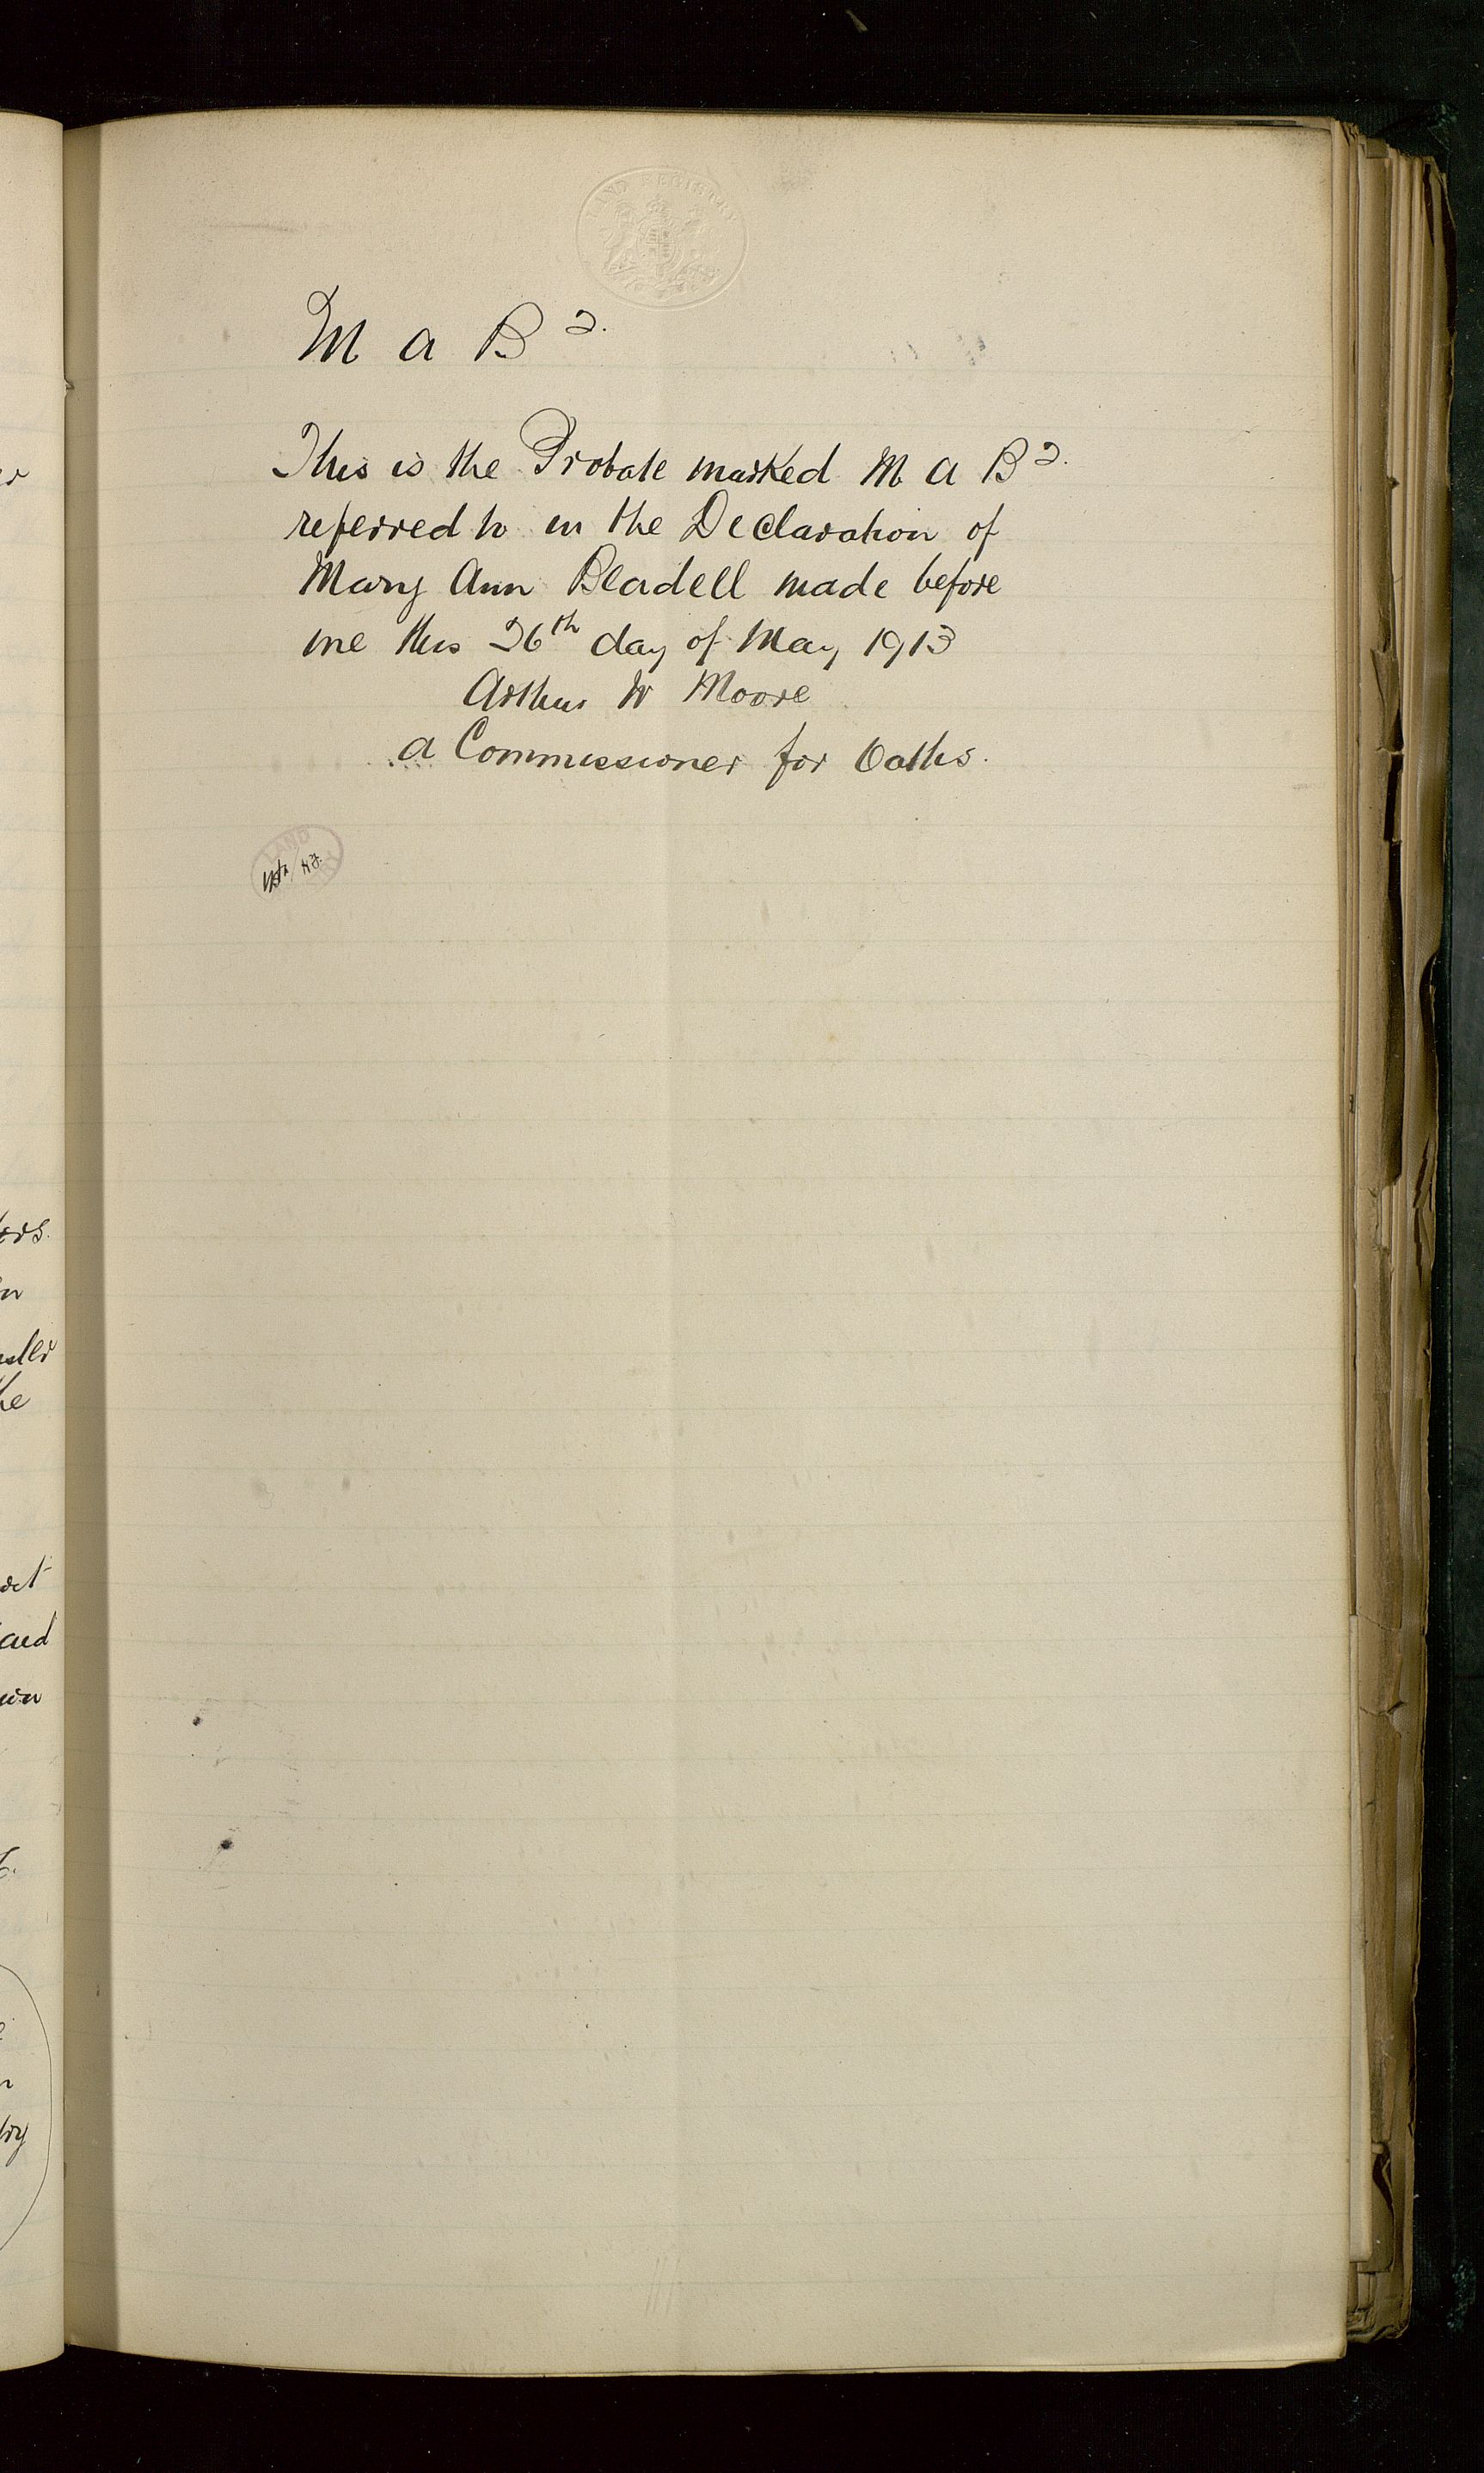 LAND REGISTRY
M A B 2.
This is the Probate marked M A B 2.
referred to in the Declaration of
Mary Ann Bleadell made before
me this 26th day of May 1913
Arthur W Moore
a Commissioner for Oaths.
LAND